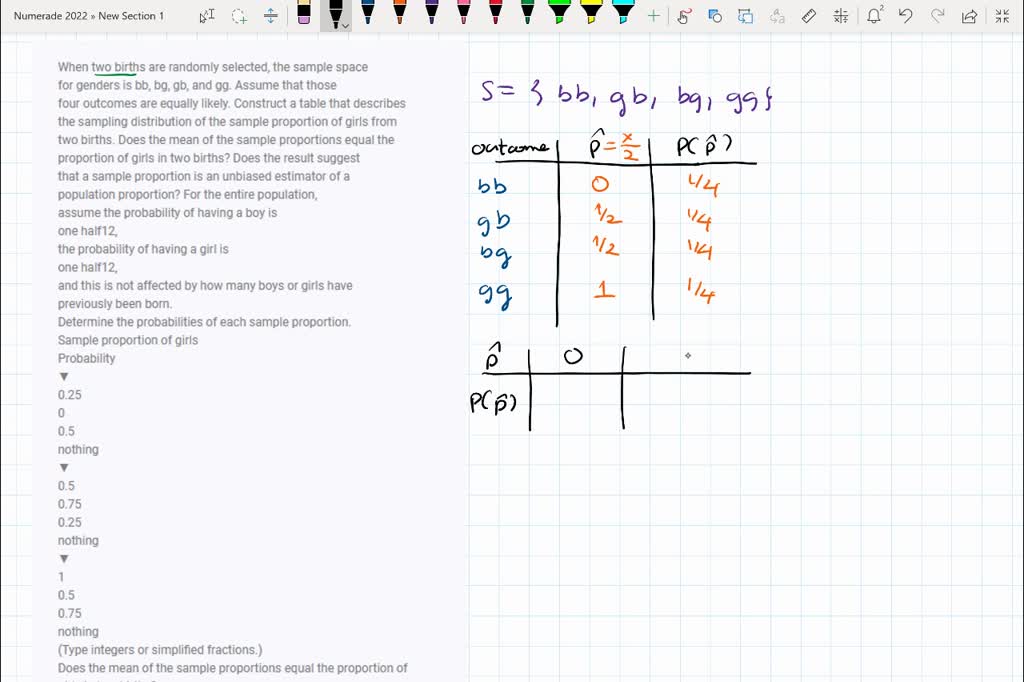 Numerade 2022 » New Section 1
When two births are randomly selected, the sample space
for genders is bb, bg, gb, and gg. Assume that those
four outcomes are equally likely. Construct a table that describes
the sampling distribution of the sample proportion of girls from
two births. Does the mean of the sample proportions equal the
proportion of girls in two births? Does the result suggest
that a sample proportion is an unbiased estimator of a
population proportion? For the entire population,
assume the probability of having a boy is
one half12,
the probability of having a girl is
one half12,
and this is not affected by how many boys or girls have
previously been born.
Determine the probabilities of each sample proportion.
Sample proportion of girls
Probability
▼
0.25
0
0.5
nothing
▼
0.5
0.75
0.25
nothing
▼
1
0.5
0.75
nothing
(Type integers or simplified fractions.)
Does the mean of the sample proportions equal the proportion of
S = { bb, gb, bg, gg }
outcome p̂ = x/2 P(p̂)
bb 0 1/4
gb 1/2 1/4
bg 1/2 1/4
gg 1 1/4
p̂ 0
P(p̂)